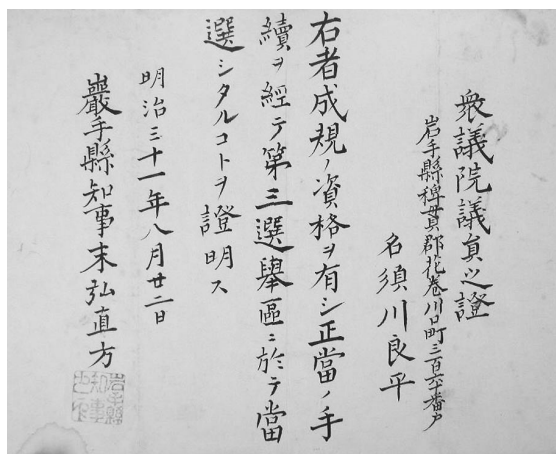 衆議院議員之證
岩手縣稗貫郡花巻川口町三百六十番戸
名須川良平
右者成規ノ資格ヲ有シ正當ノ手
續ヲ經テ第三選擧區ニ於テ當
選シタルコトヲ證明ス
明治三十一年八月廿二日
巖手縣知事末弘直方
岩手縣
知事
之印